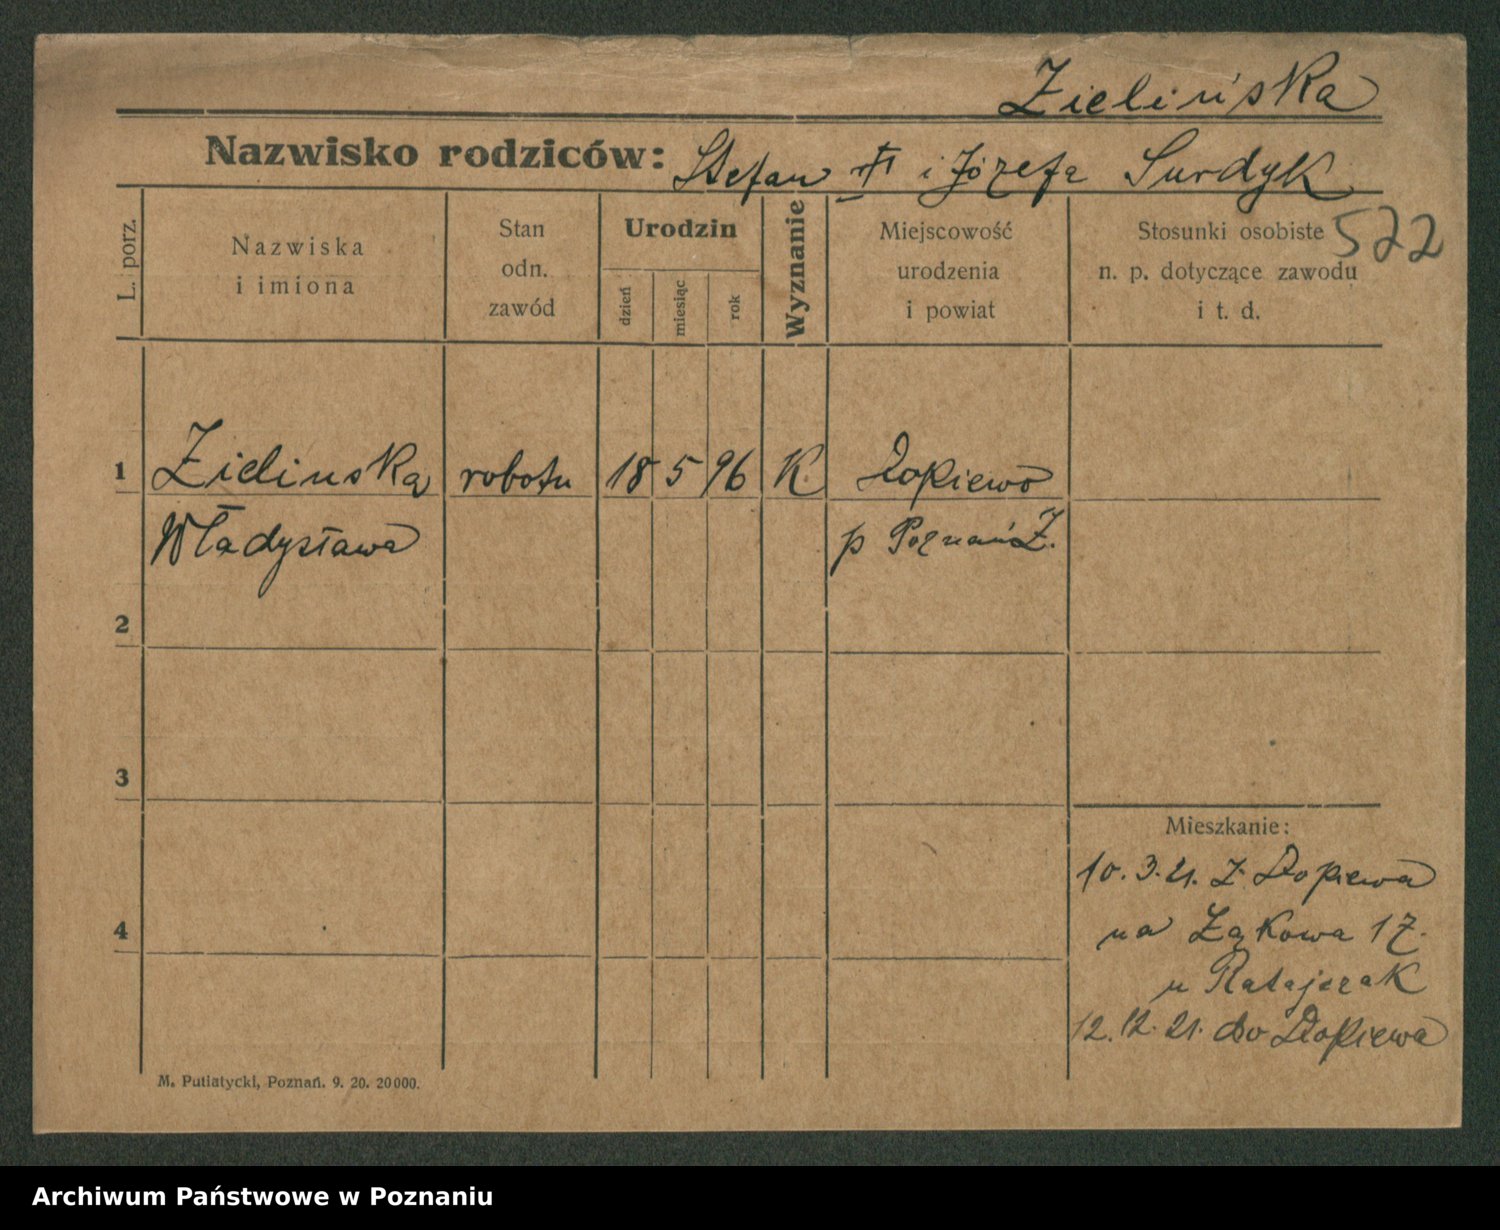 Zielińska
Nazwisko rodziców: Stefan i Józefa Surdyk
572
L. porz.
Nazwiska i imiona
Stan odn. zawód
Urodzin
dzień
miesiąc
rok
Wyznanie
Miejscowość urodzenia i powiat
Stosunki osobiste n. p. dotyczące zawodu i t. d.
1 Zielinska robotn 18 5 96 K Dopiewo
Władysława p Poznań Z.
2
3
4
Mieszkanie:
10.3.21. z Dopiewa
na Łąkowa 17.
u Ratajczak
12.12.21. do Dopiewa
M. Putiatycki, Poznań. 9. 20. 20000.
Archiwum Państwowe w Poznaniu